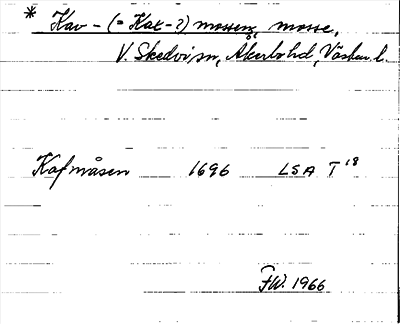 * Kav- (= Kax-?) mossen, mosse,
V. Skedvi sn, Åkerbo hd, Västm. l.
Kafmåsen 1696 LSA T 18
FW. 1966